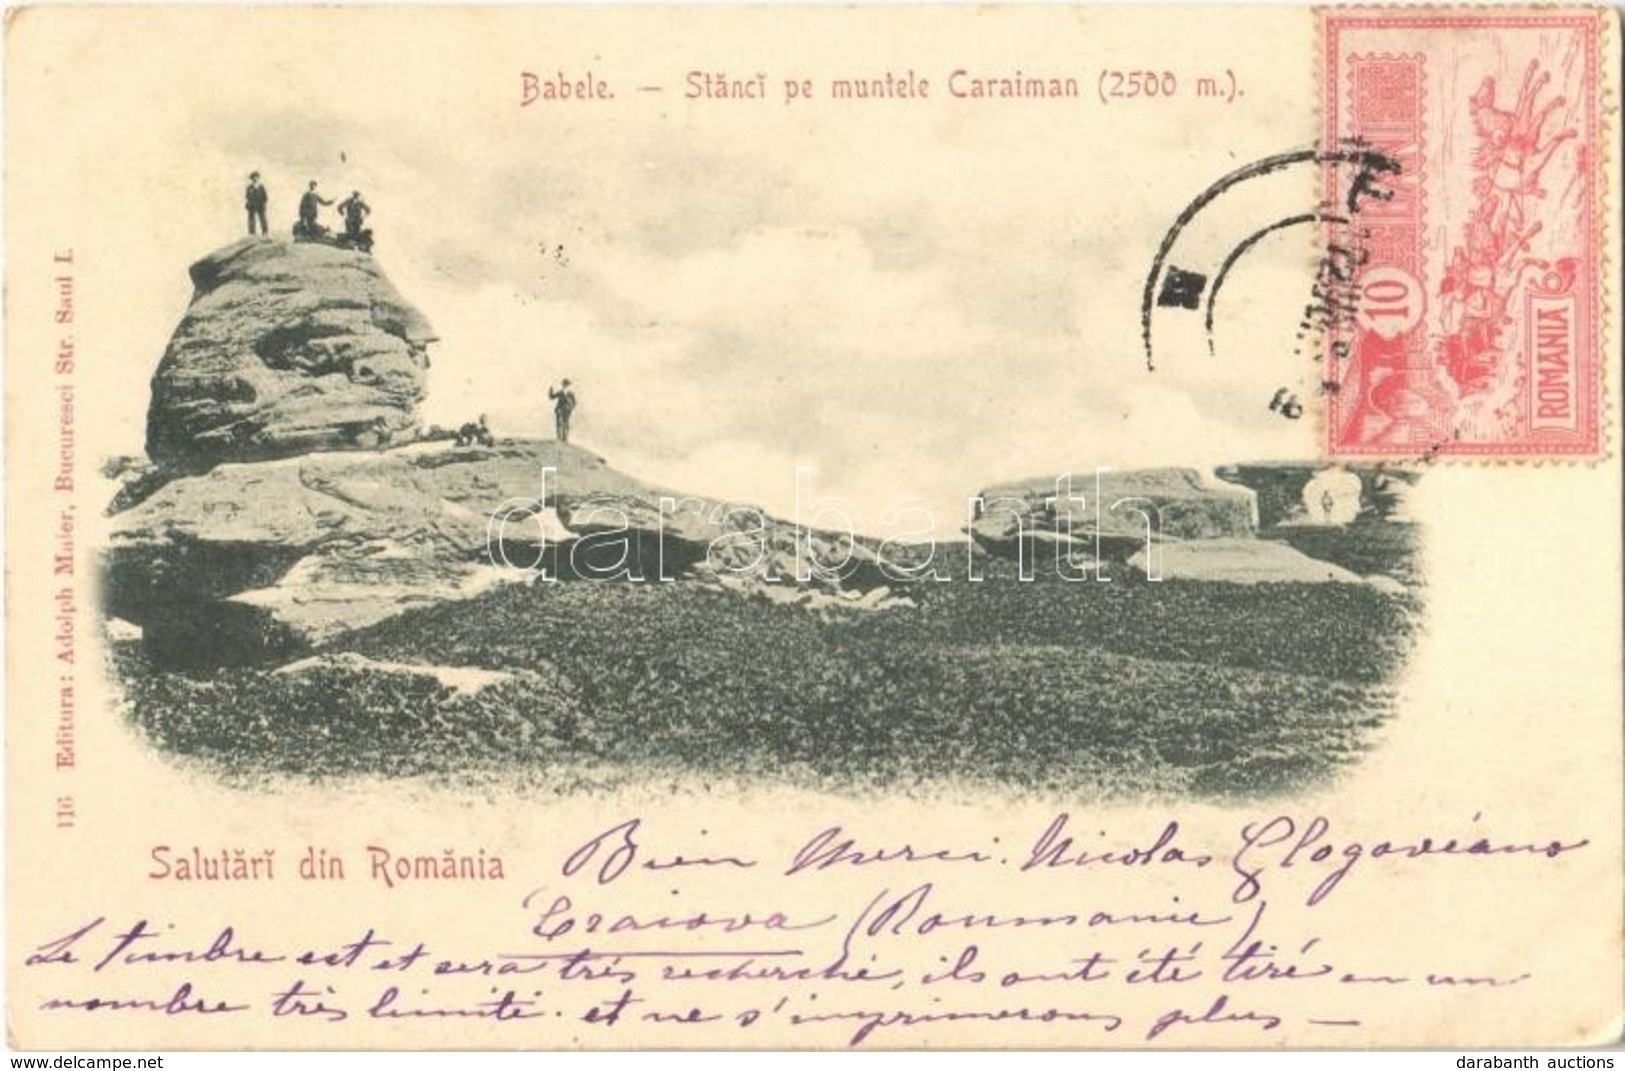 Babele. — Stăncĭ pe muntele Caraiman (2500 m.).
10
ROMANIA
116 Editura: Adolph Maier, Bucuresci Str. Saul I.
darabanth
Salutărĭ din Romănia
Bien Merci. Nicolas Glogoviano
Craiova (Roumanie)
Le timbre est et sera très recherché, ils ont été tiré en un
nombre très limité. et ne s'imprimerons plus —
delcampe.net
darabanth auctions